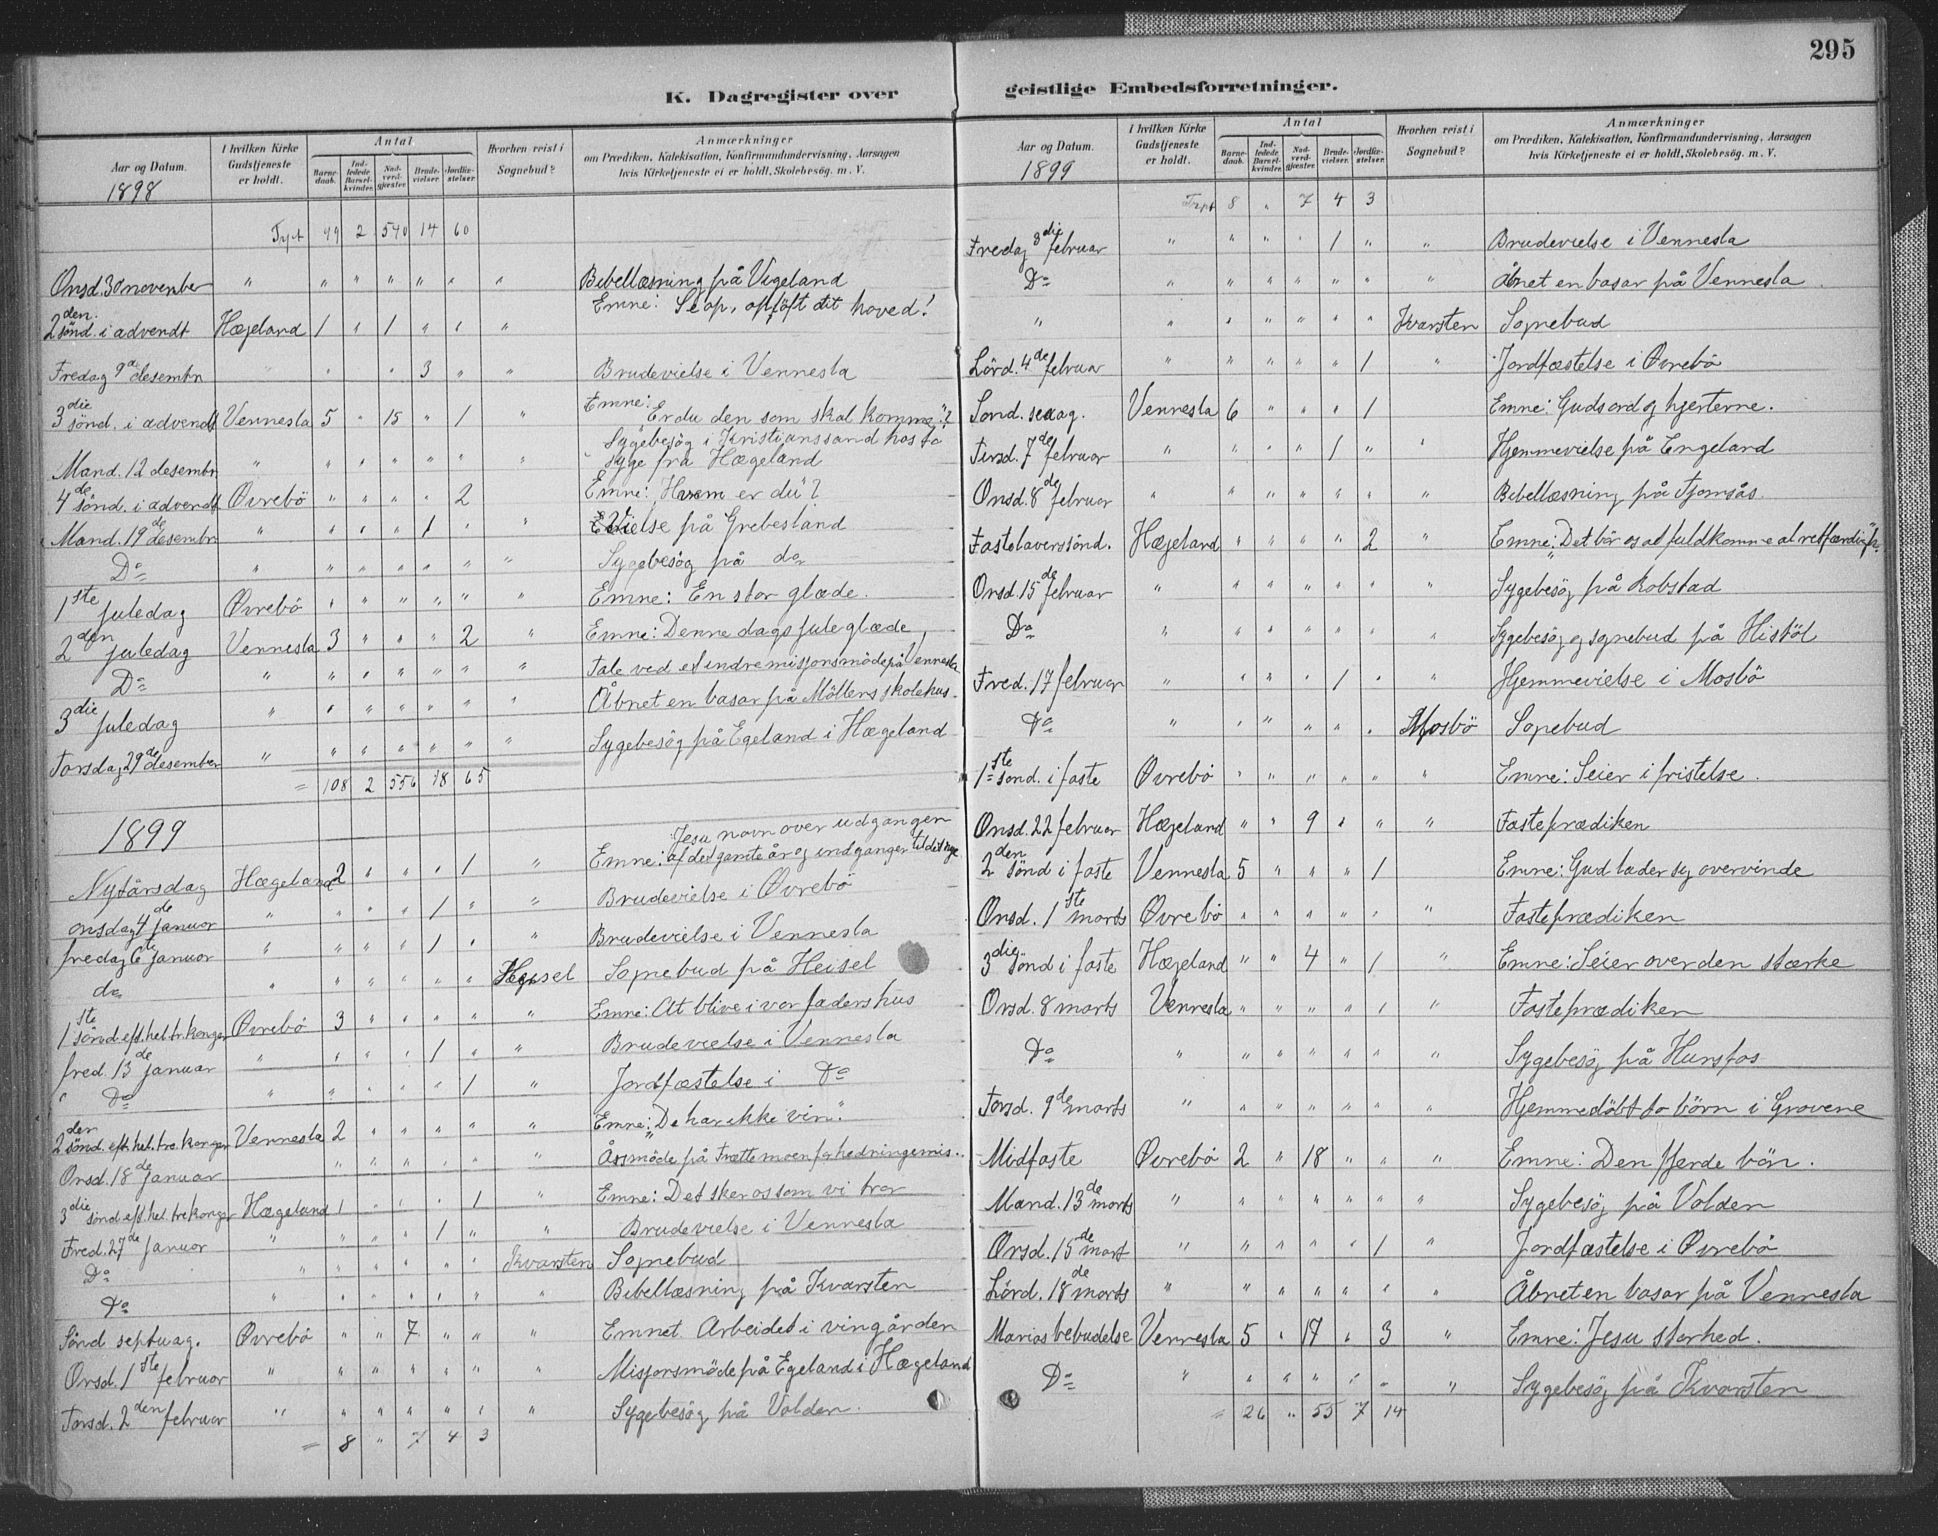 295
K. Dagregister over geistlige Embedsforretninger.
Aar og Datum. | I hvilken Kirke Gudstjeneste er holdt. | Antal | Barnedaab. | Indledede Barselkvinder. | Nadverdgjæster. | Brudevielser. | Jordfæstelser. | Hvorhen reist i Sognebud? | Anmærkninger om Prædiken, Katekisation, Konfirmandundervisning, Aarsagen hvis Kirketjeneste ei er holdt, Skolebesøg m. V.
1898
99 2 540 14 60
Onsd. 30 november " " " " " " " Bibellæsning på Vigeland
2den sönd. i advendt Hægeland 1 " 1 " " " Emne: Se op, opföft dit hoved!
Fredag 9de desembr " " " 3 " " Brudevielse i Vennesla
3die sönd. i advendt Vennesla 5 " 15 " 1 " Emne: "Er du den som skal komme"?
Mand. 12 desembr. " " " " " " " Sygebesög i Kristianssand hos to syge fra Hægeland
4de sönd. i advendt Øvrebö " " " " 2 Emne: "Hvem er du"?
Mand. 19de desembr " " " " 1 " " Vielse på Grebesland
Do " " " " " " " Sygebesög på do
1ste juledag Øvrebö " " " " " " Emne: En stor glæde.
2den juledag Vennesla 3 " " " 2 " Emne: Denne dags juleglæde
Do " " " " " " " Tale ved et indremisjonsmöde på Vennesla
3die juledag " " " " " " " Åbnet en basar på Möllens skolehus
Torsdag 29de desember " " " " " " " Sygebesög på Egeland i Hægeland
= 108 2 556 18 65
1899
Nytårsdag Hægeland 2 " " " 1 " Emne: Jesu navn over udgangen af det gamle år og indgangen til det nye
onsdag 4de januar " " " " 1 " " Brudevielse i Øvrebö
fredag 6te januar " " " " 1 " " Brudevielse i Vennesla
do " " " " " " Heisel Sognebud på Heisel
1ste sönd. eft. hel. tr. konger Øvrebö 3 " " " " " Emne: At blive i vor faders hus
fred. 13de januar " " " " 1 " " Brudevielse i Vennesla
" Do " " " " " 1 " Jordfæstelse i Do
2den sönd. eft. hel. tre konger Vennesla 2 " " " " " Emne: "De har ikke vin".
Onsd. 18de januar " " " " " " Årsmöde på Trættemoen for hedningemis.
3die sönd. eft. hel. tre konger Hægeland 1 " " " 1 " Emne: Det sker os som vi tror
Fred. 27de januar " " " " 1 " " Brudevielse i Vennesla
Do " " " " " " Kvarsten Sognebud
Do " " " " " " " Bibellæsning på Kvarsten
Sönd septuag. Øvrebö " " 7 " " " Emnet Arbeidet i vingården
Onsd. 1ste februar " " " " " " Misjonsmöde på Egeland i Hægeland
Torsd. 2den februar " " " " " " " Sygebesög på Volden.
= 8 " 7 4 3
Aar og Datum. | I hvilken Kirke Gudstjeneste er holdt. | Antal | Barnedaab. | Indledede Barselkvinder. | Nadverdgjæster. | Brudevielser. | Jordfæstelser. | Hvorhen reist i Sognebud? | Anmærkninger om Prædiken, Katekisation, Konfirmandundervisning, Aarsagen hvis Kirketjeneste ei er holdt, Skolebesøg m. V.
1899
8 " 7 4 3
Fredag 3die februar " " " " 1 " " Brudevielse i Vennesla
Do " " " " " " " Åbnet en basar på Vennesla
" " " " " " " Kvarsten Sognebud
Lörd. 4de februar " " " " " 1 " Jordfæstelse i Øvrebö
Sönd. sexag. Vennesla 6 " " " 1 Emne: Guds ord og hjerterne.
Tirsd. 7de februar " " " " 1 " " Hjemmevielse på Engeland
Onsd. 8de februar " " " " " " " Bibellæsning på Fjomsås
Fastelaverssönd. Hægeland " " " " 2 " Emne: "Det bör os at fuldkomme al retfærdigh."
Onsd. 15de februar " " " " " " " Sygebesög på Robstad
Do " " " " " " " Sygebesög og sognebud på Histöl
Fred. 17 februar " " " " 1 " " Hjemmevielse i Mosbö
Do " " " " " " Mosbö Sognebud
1ste sönd. i faste Øvrebö " " " " " " Emne: Seier i fristelse.
Onsd. 22 februar Hægeland " " 9 " " " Fasteprædiken
2den sönd i faste Vennesla 5 " " " 1 Emne: Gud lader sig overvinde
Onsd. 1ste marts Øvrebö " " " " " " Fasteprædiken
3die sönd i faste Hægeland " " 4 " 1 " Emne: Seier over den stærke
Onsd. 8 marts Vennesla " " " " " " Fasteprædiken
Do " " " " " " " Sygebesög på Hunsfos
Torsd. 9de marts " " " " " " " Hjemmedöbt to börn i Grovene
Midfaste Øvrebö 2 " 18 " " " Emne: Den fjerde bön.
Mand. 13de marts " " " " " " " Sygebesög på Volden
Onsd. 15de mart " " " " " 1 " Jordfæstelse i Øvrebö
Lörd. 18de marts " " " " " " " Åbnet en basar på Vennesla
Marias bebudelse Vennesla 5 " 17 " 3 " Emne: Jesu storhed.
Do " " " " " " " Sygebesög på Kvarsten
= 26 " 55 7 14